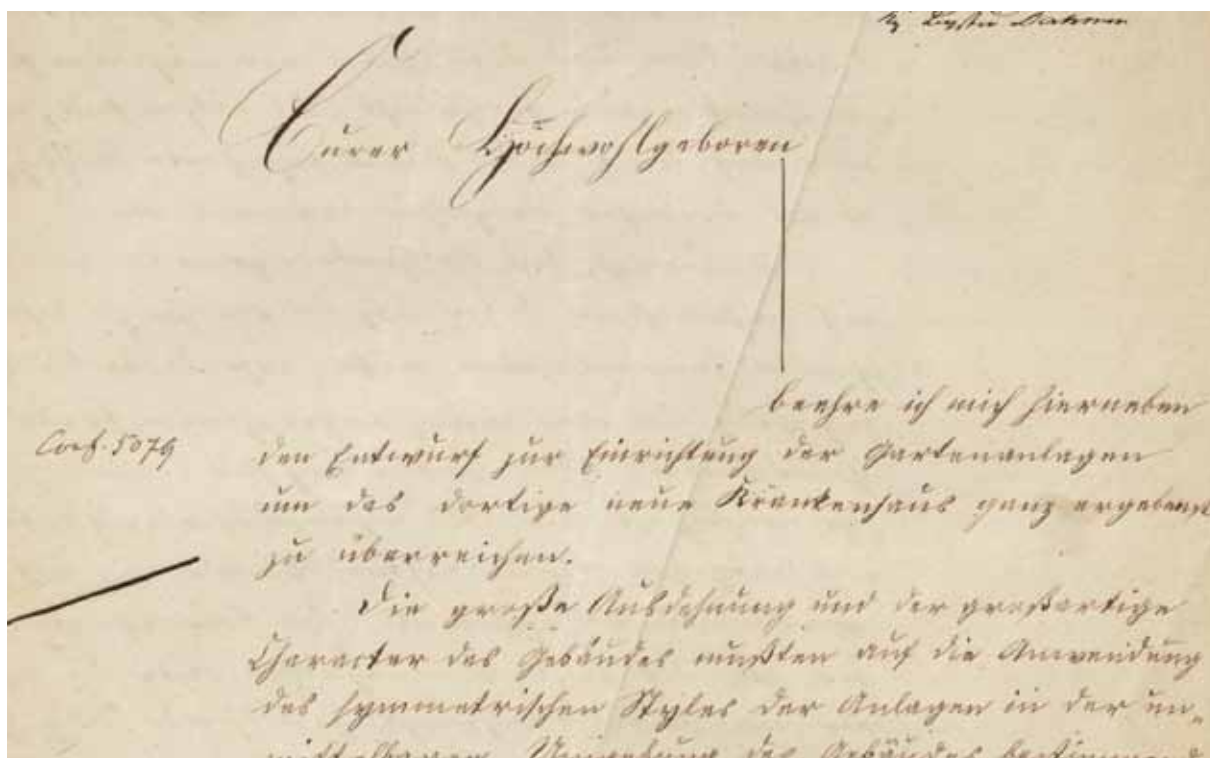 Eurer Hochwohlgeboren
beehre ich mich hierneben
den Entwurf zur Einrichtung der Gartenanlagen
um das dortige neue Krankenhaus ganz ergebenst
zu überreichen.
Die große Ausdehnung und der großartige
Character des Gebäudes mußten auf die Anwendung
des symmetrischen Styles der Anlagen in der un-
mittelbaren Umgebung des Gebäudes bestimmend